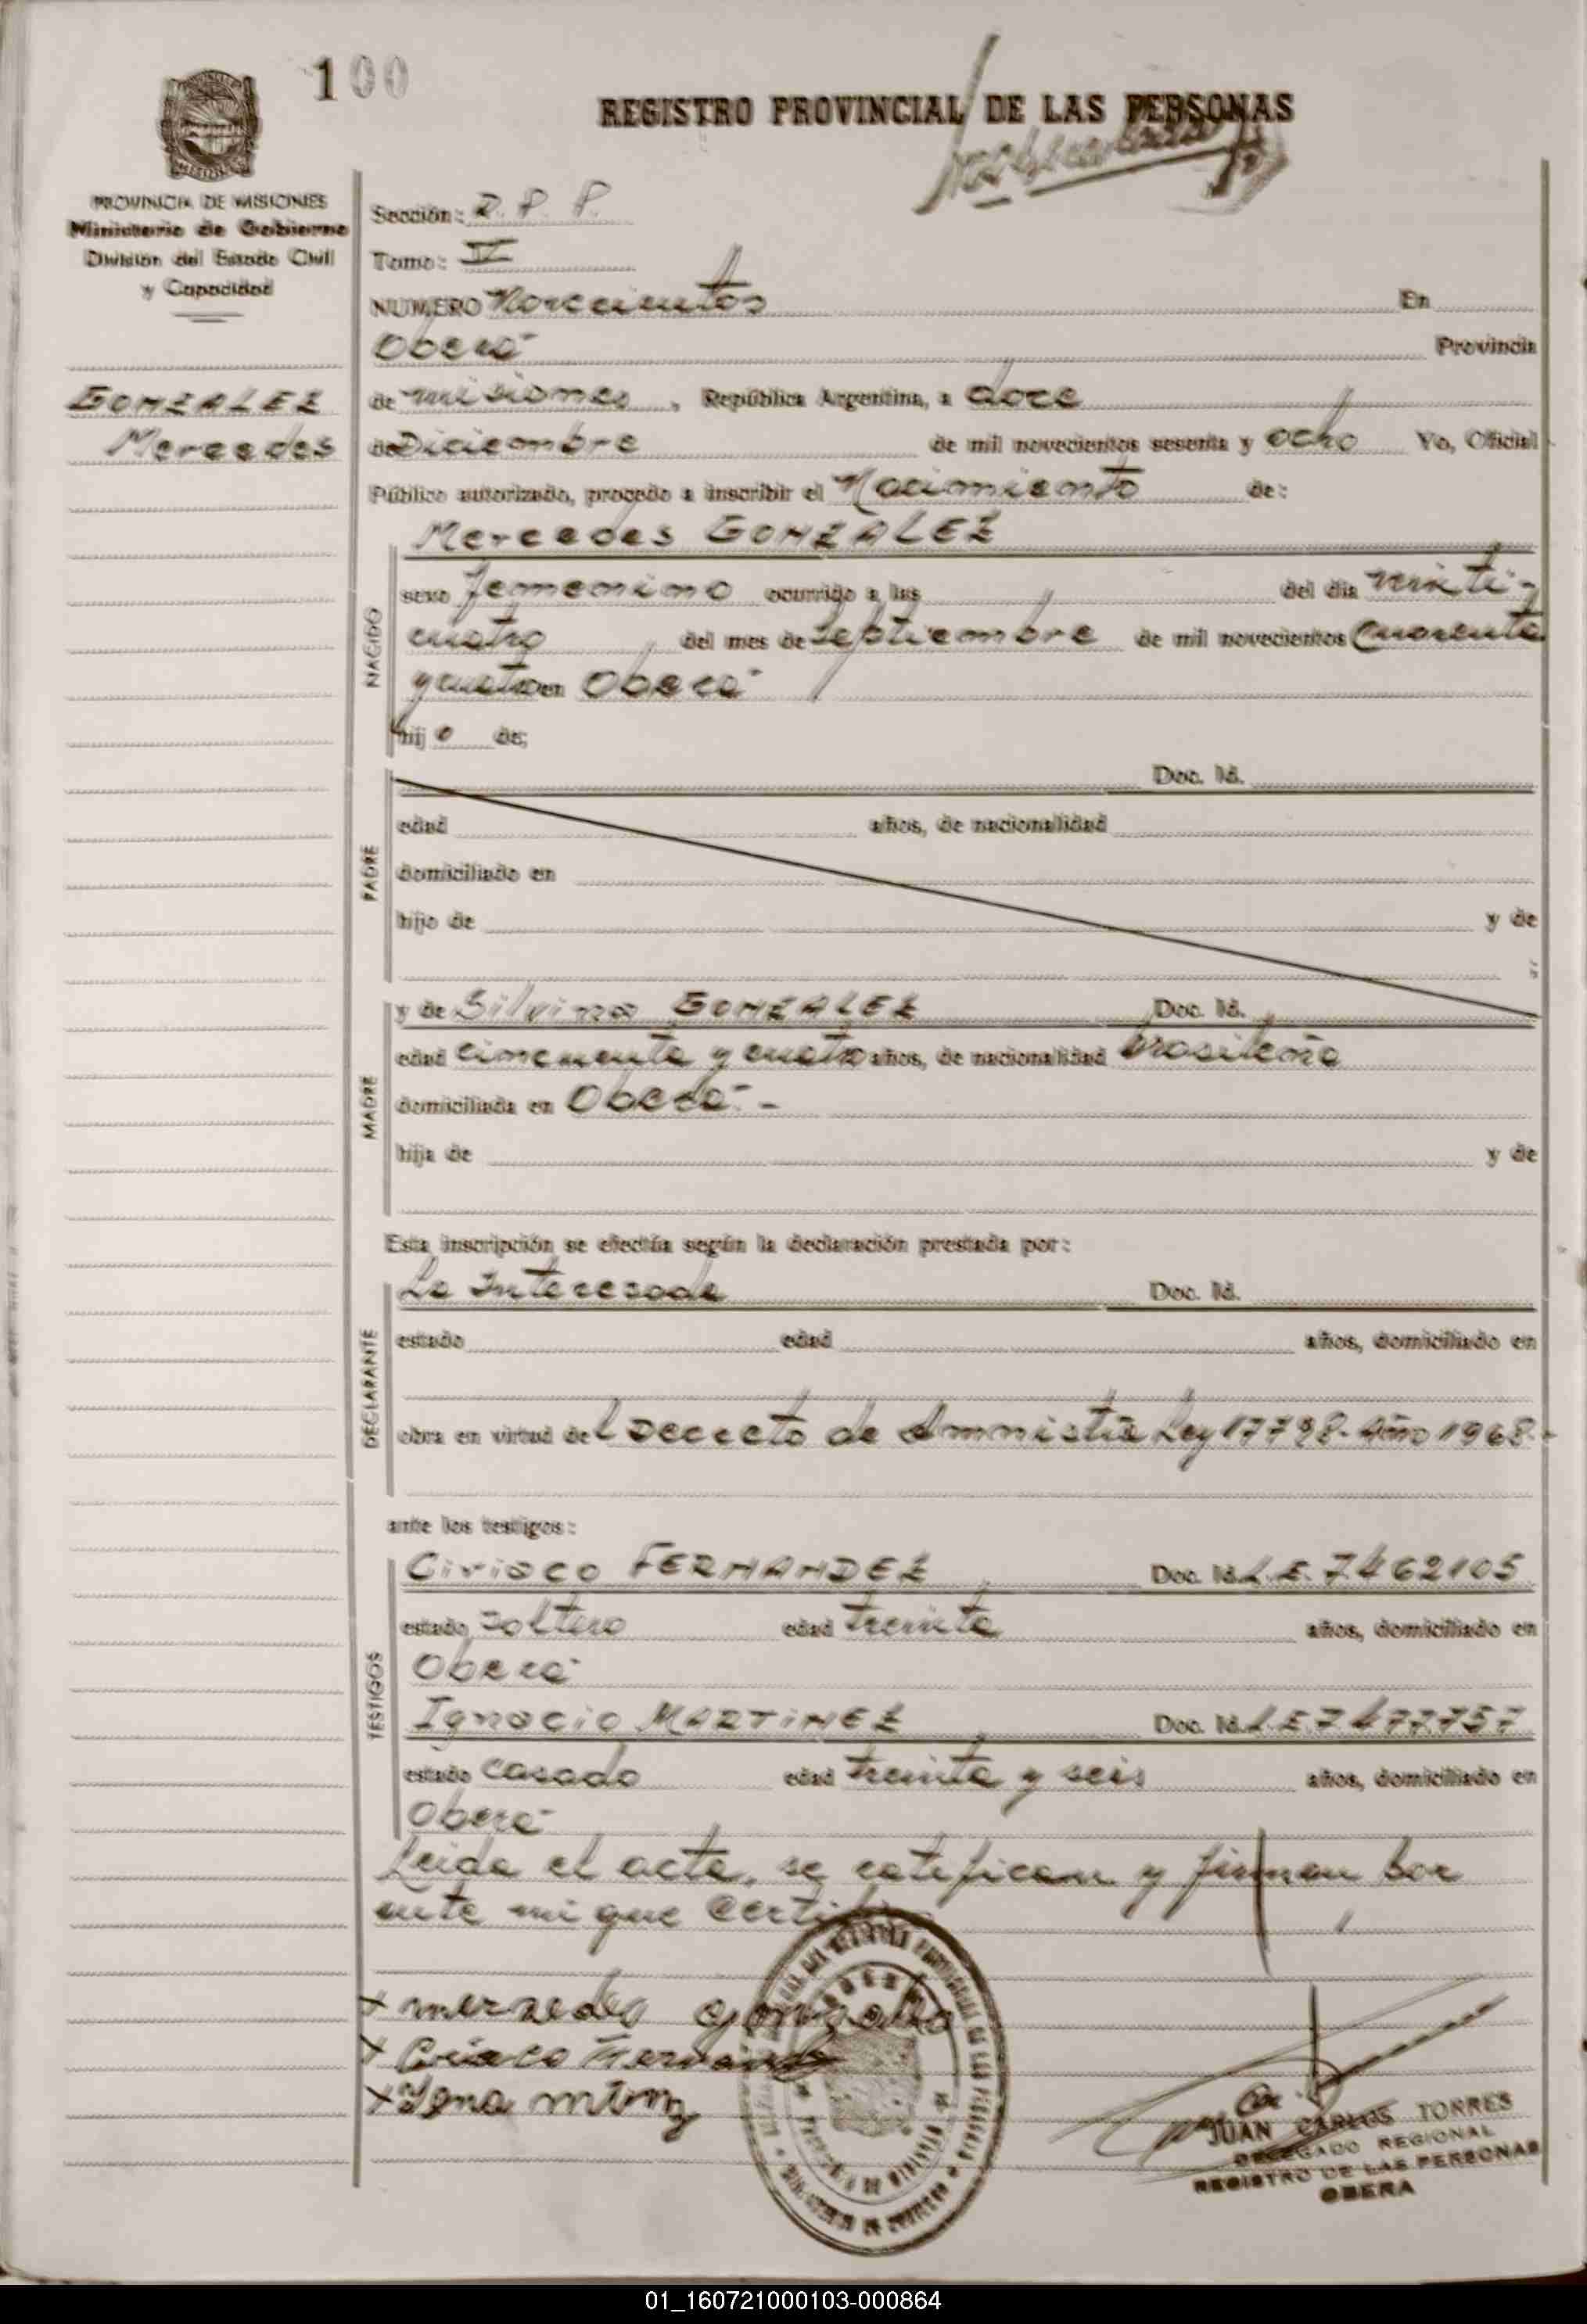 100
REGISTRO PROVINCIAL DE LAS PERSONAS
PROVINCIA DE MISIONES
Ministerio de Gobierno
División del Estado Civil
y Capacidad
GONZALEZ
Mercedes
Sección: R. P. P.
Tomo: IV
NUMERO Novecientos En
Oberá Provincia
de misiones, República Argentina, a doce
de Diciembre de mil novecientos sesenta y ocho Yo, Oficial
Público autorizado, procedo a inscribir el Nacimiento de:
Mercedes GONZALEZ
NACIDO
sexo femenino ocurrido a las del día veinti-
cuatro del mes de septiembre de mil novecientos cuarenta
y cuatro en Oberá
hij a de;
PADRE
Doc. Id.
edad años, de nacionalidad
domiciliado en
hijo de y de
MADRE
y de Silvina GONZALEZ Doc. Id.
edad cincuenta y cuatro años, de nacionalidad brasileña
domiciliada en Oberá -
hija de y de
Esta inscripción se efectúa según la declaración prestada por:
DECLARANTE
La Interesada Doc. Id.
estado edad años, domiciliado en
obra en virtud del Decreto de Amnistia Ley 17798- Año 1968-
ante los testigos:
TESTIGOS
Ciriaco FERNANDEZ Doc. Id. L.E. 7.462105
estado soltero edad treinta años, domiciliado en
Oberá
Ignacio MARTINEZ Doc. Id. L.E. 7477757
estado casado edad treinta y seis años, domiciliado en
Oberá
Leida el acta, se ratifican y firman por
ante mi que
merzedes gonzales
Ciriaco Fernandez
JUAN CARLOS TORRES
DELEGADO REGIONAL
REGISTRO DE LAS PERSONAS
OBERA
01_160721000103-000864